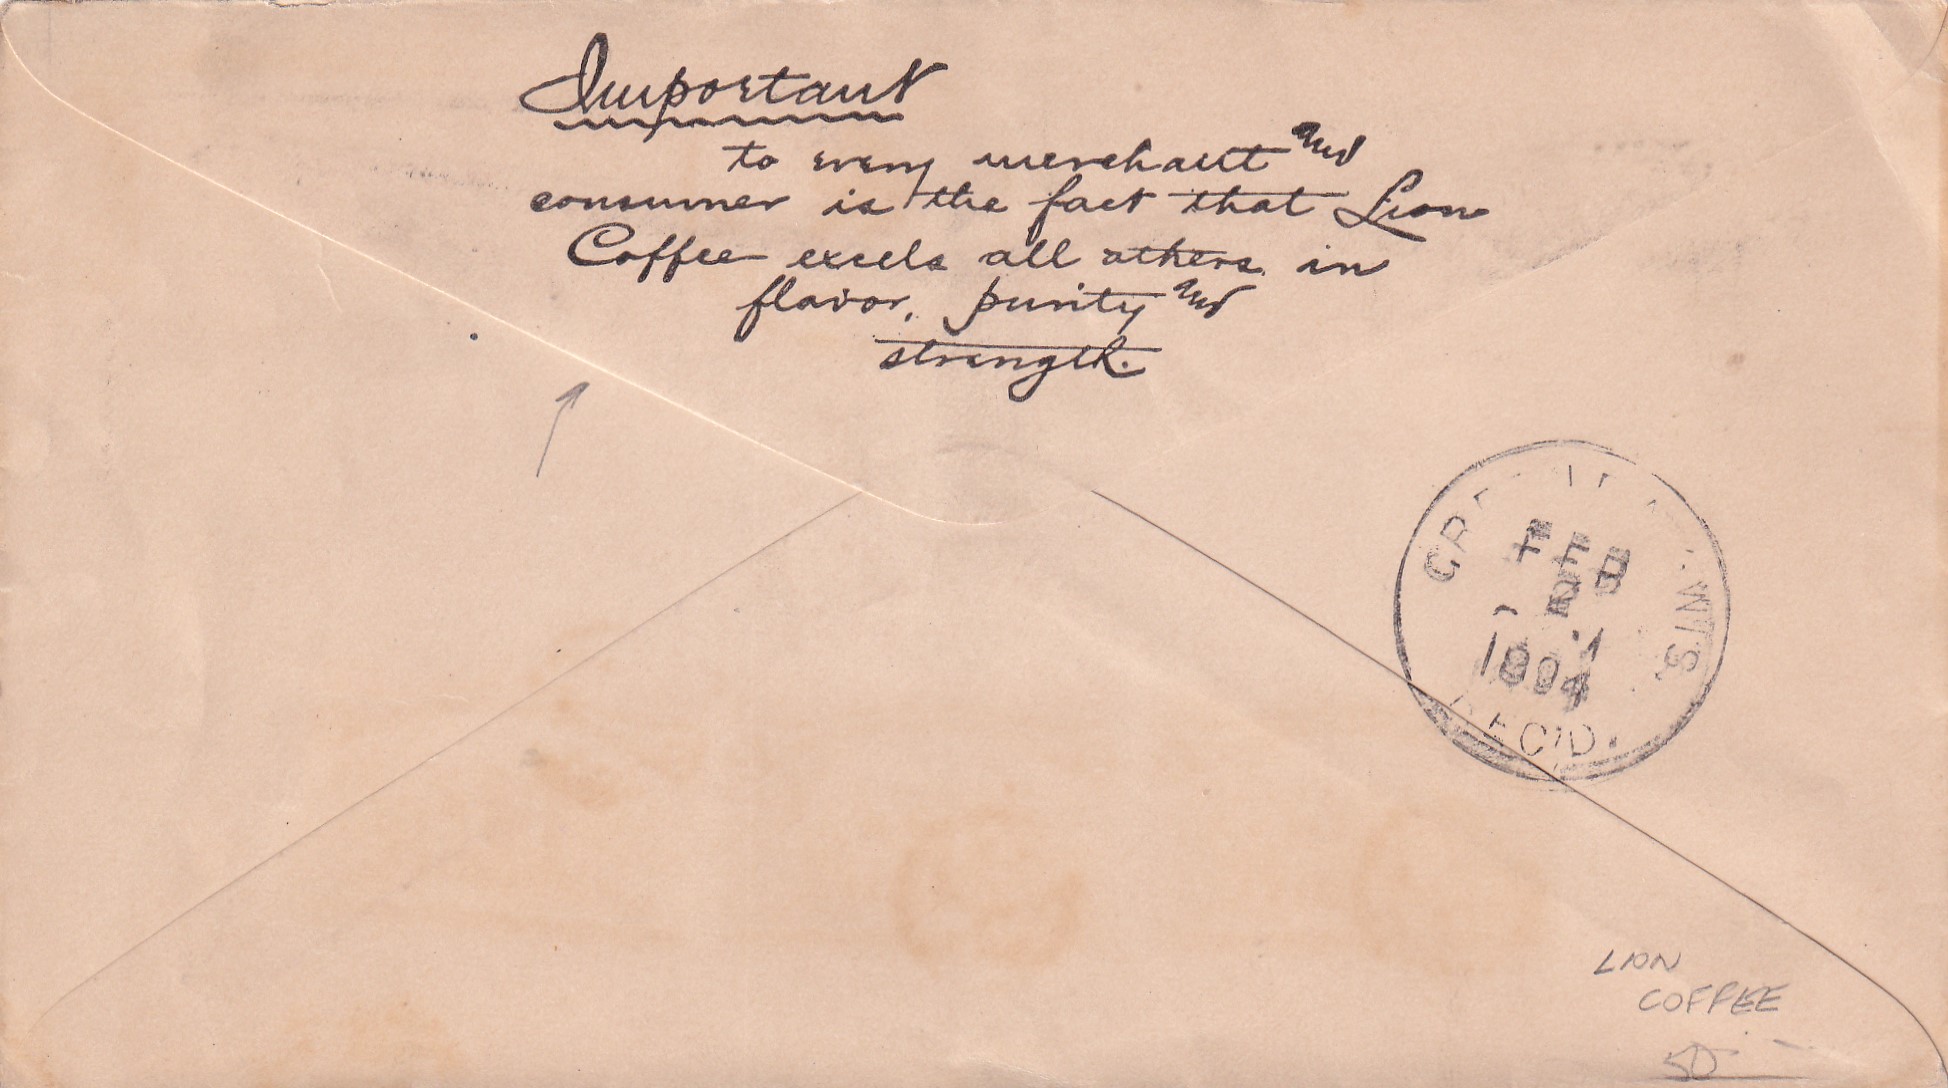 Important
to every merchant and
consumer is the fact that Lion
Coffee excels all others in
flavor, purity and
strength.
WIS.
FEB
2
1894
REC'D.
LION
COFFEE
50